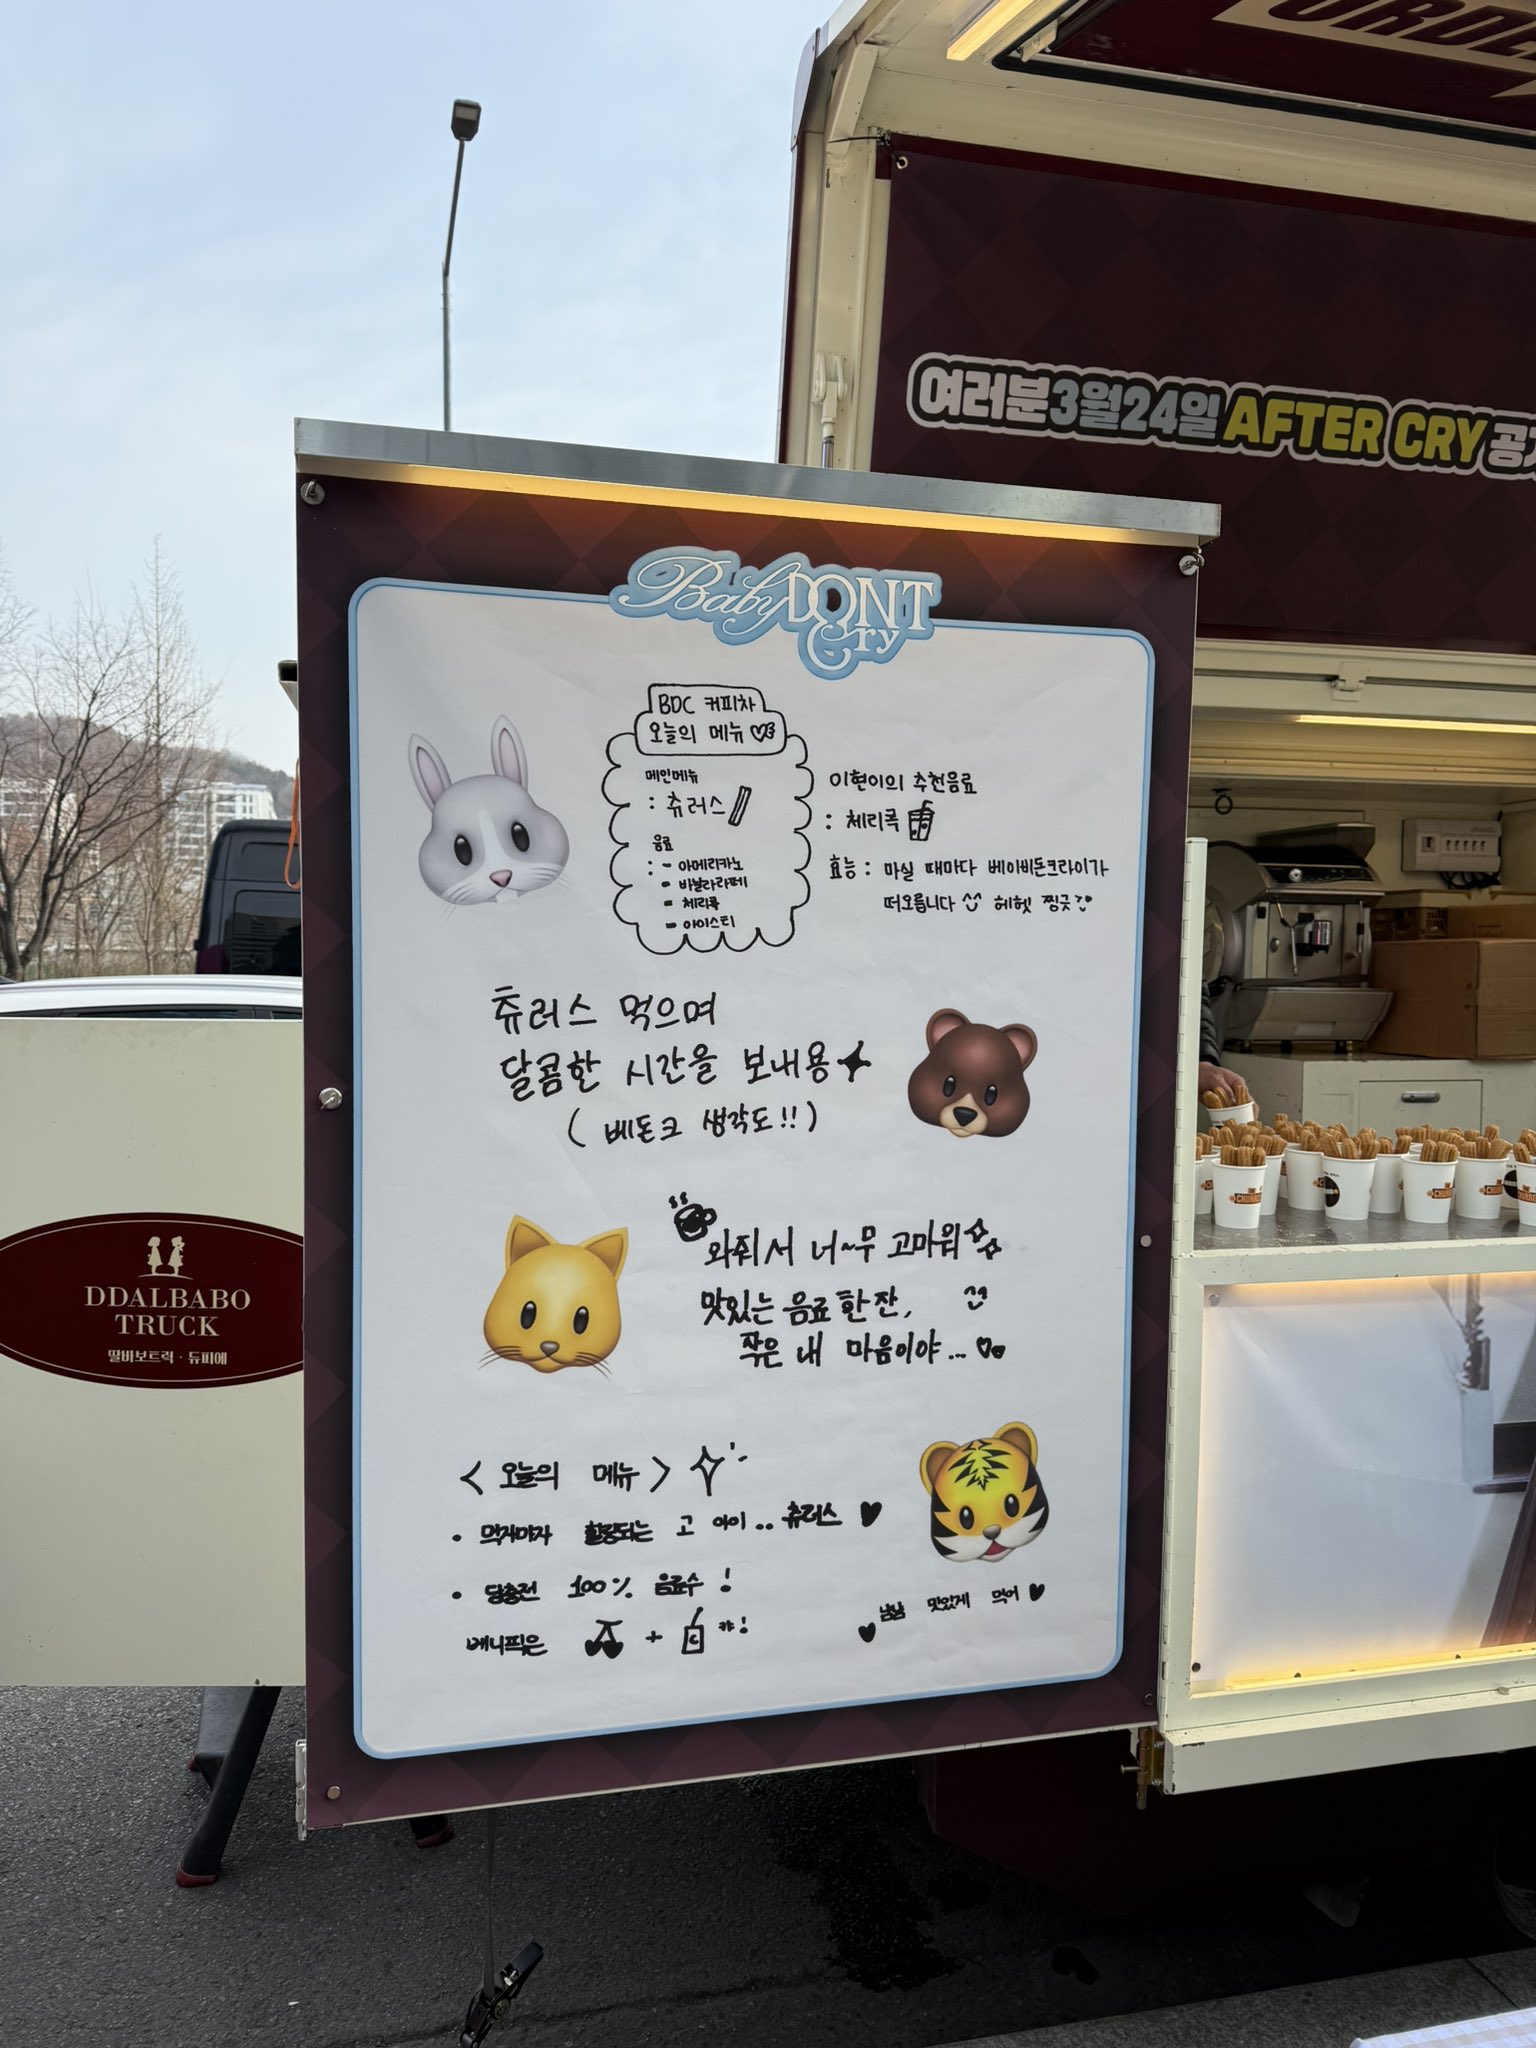 ORDE
여러분3월24일 AFTER CRY 공개
Baby DONT Cry
BDC 커피차
오늘의 메뉴
메인메뉴
: 츄러스
음료
: - 아메리카노
- 바닐라라떼
- 체리콕
- 아이스티
이현이의 추천음료
: 체리콕
효능 : 마실 때마다 베이비돈크라이가
떠오릅니다 헤헷 찡긋
츄러스 먹으며
달콤한 시간을 보내용
( 베돈크 생각도!! )
와줘서 너~무 고마워
맛있는 음료 한 잔,
작은 내 마음이야...
<오늘의 메뉴>
• 먹자마자 힐링되는 고 아이.. 츄러스
• 당충전 100% 음료수 !
베니픽은 + C 캬!
냠냠 맛있게 먹어
DDALBABO
TRUCK
딸바보트럭 · 듀피에
CHURRO